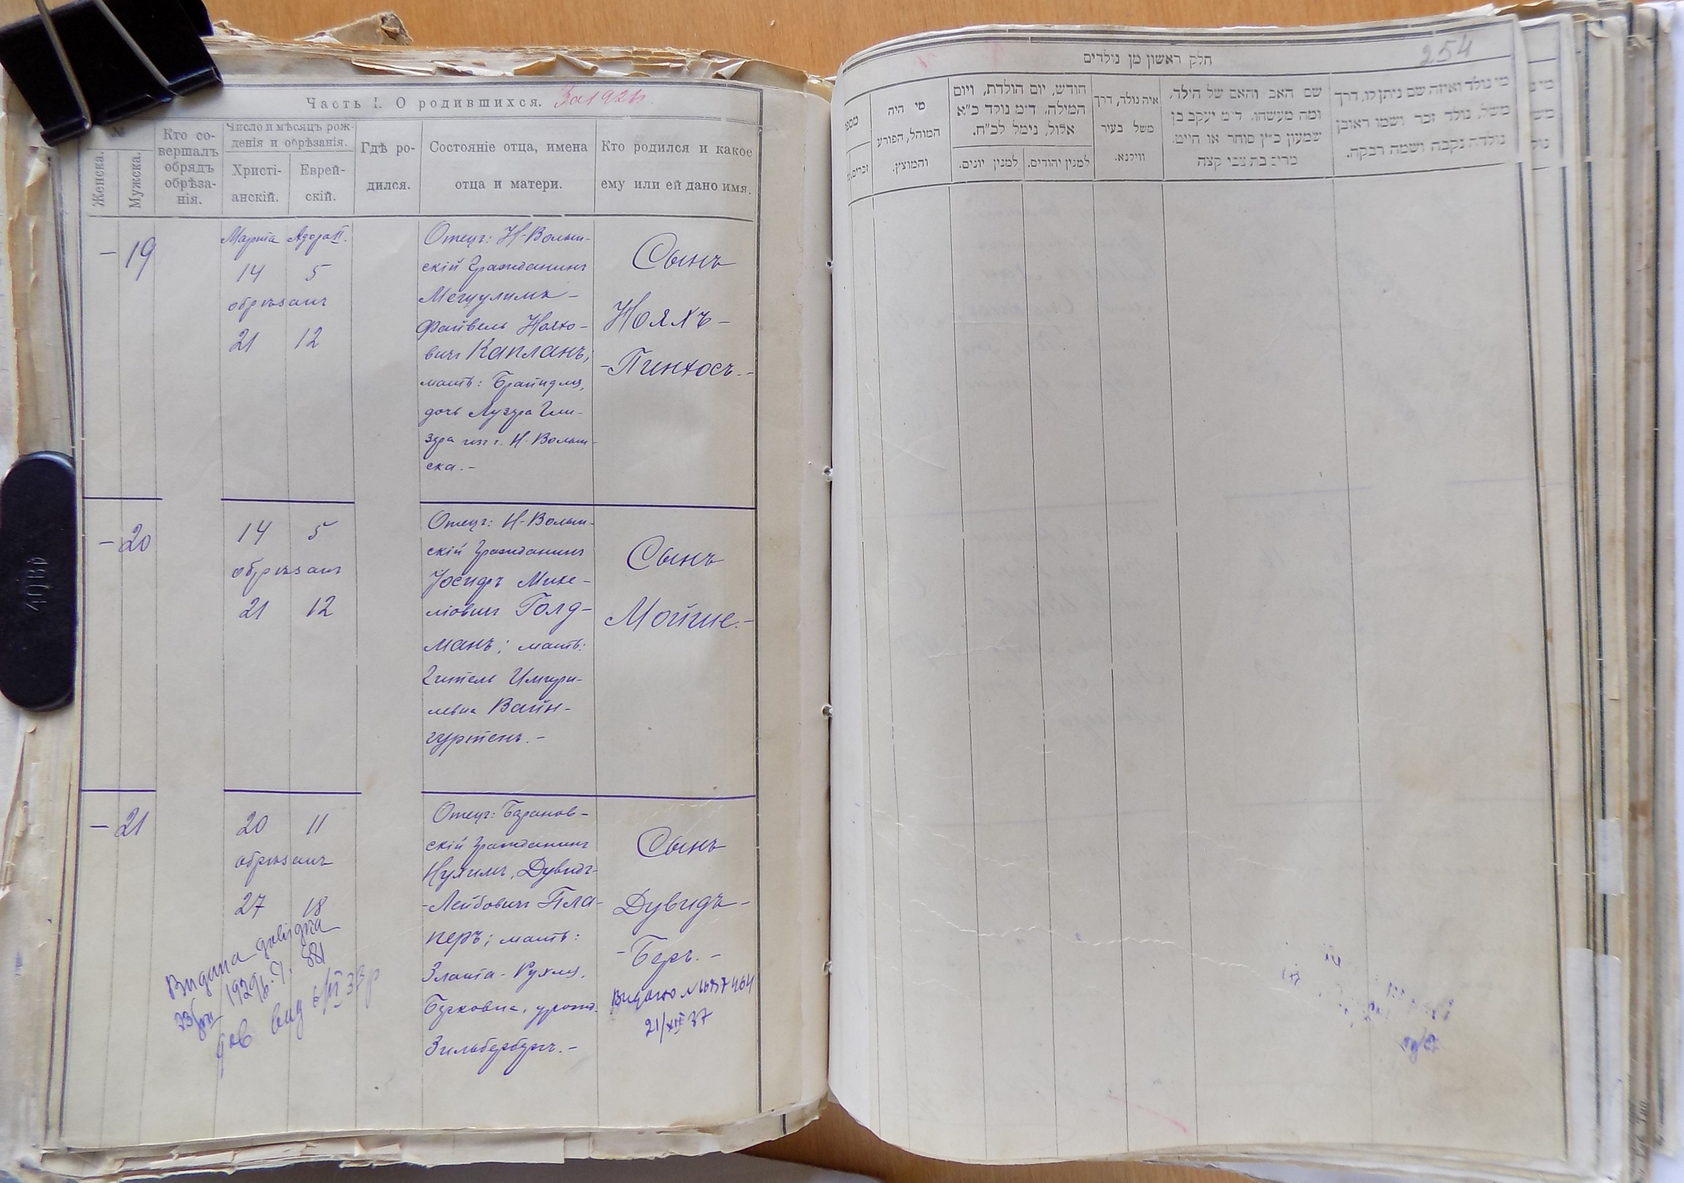 Часть I. О родившихся. За 192
№
Женска.
Мужска.
Кто со-
вершалъ
обрядъ
обрѣза-
нія.
Число и мѣсяцъ рож-
денія и обрѣзанія.
Христі-
анскій.
Еврей-
скій.
Гдѣ ро-
дился.
Состояніе отца, имена
отца и матери.
Кто родился и какое
ему или ей дано имя.
— 19
Марта Адора II.
14 5
обрѣзанъ
21 12
Отецъ: Н-Волын-
скій гражданинъ
Мешулимъ-
Файвель Нояхо-
вичъ Капланъ;
мать: Брайндля,
дочь
зера изъ г. Н-Волын-
ска.-
Сынъ
Нояхъ-
-Пинхосъ.-
— 20
14 5
обрѣзанъ
21 12
Отецъ: Н-Волын-
скій гражданинъ
Іосифъ Михе-
лiовичъ Голд-
манъ; мать:
Гитель
левна Вайн-
Сынъ
Мойше.-
— 21
20 11
обрѣзанъ
27 18
Отецъ: Баранов-
скій гражданинъ
Нухимъ, Дувидъ-
-Лейбовичъ Пла-
неръ; мать:
Злата-Рухля,
Берковна, урожд.
Зильбербергъ.-
Сынъ
Дувидъ-
-Беръ.-
Видана довідка
1929 881
дов вид 6/VI 37 р
Видано №
21/XII 37
254
חלק ראשון מן נולדים
מי היה
המוהל, הפורע
והמוצץ.
חודש, יום הולדת, ויום
המילה. ד״מ נולד כ״א
אלול, נימל לכ״ח.
למנין יונים.
למנין יהודים.
איה נולד, דרך
משל בעיר
ווילנא.
שם האב והאם של הילד,
ומה מעשהו. ד״מ יעקב בן
שמעון כ״ץ סוחר או חייט.
מרים בת צבי קצה
מי נולד ואיזה שם ניתן לו, דרך
משל, נולד זכר ושמו ראובן
נולדה נקבה ושמה רבקה.